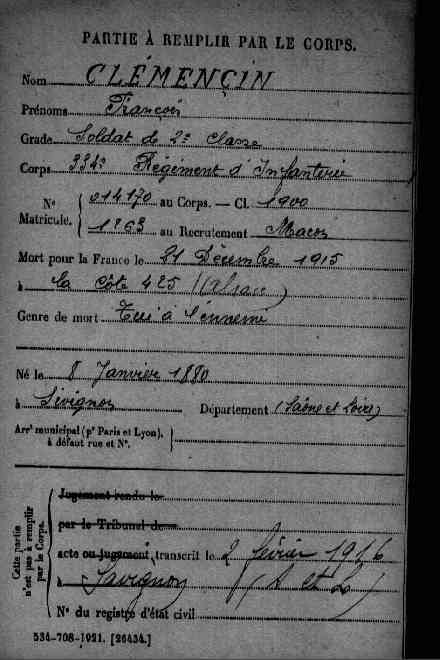 PARTIE À REMPLIR PAR LE CORPS.
Nom CLÉMENÇIN
Prénoms François
Grade Soldat de 2e classe
Corps 334e Régiment d'Infanterie
N° 014170 au Corps. — Cl. 1900
Matricule. 1263 au Recrutement Macon
Mort pour la France le 21 Décembre 1915
à la côte 425 (Alsace)
Genre de mort Tué à l'ennemi
Né le 8 Janvier 1880
à Sivignon Département (Saône et Loire)
Arr' municipal (p' Paris et Lyon),
à défaut rue et N°.
Cette partie
n'est pas à remplir
par le Corps.
Jugement rendu le
par le Tribunal de
acte ou jugement transcrit le 2 février 1916
à Savignon (S et L)
N° du registre d'état civil
534-708-1921. [26434.]